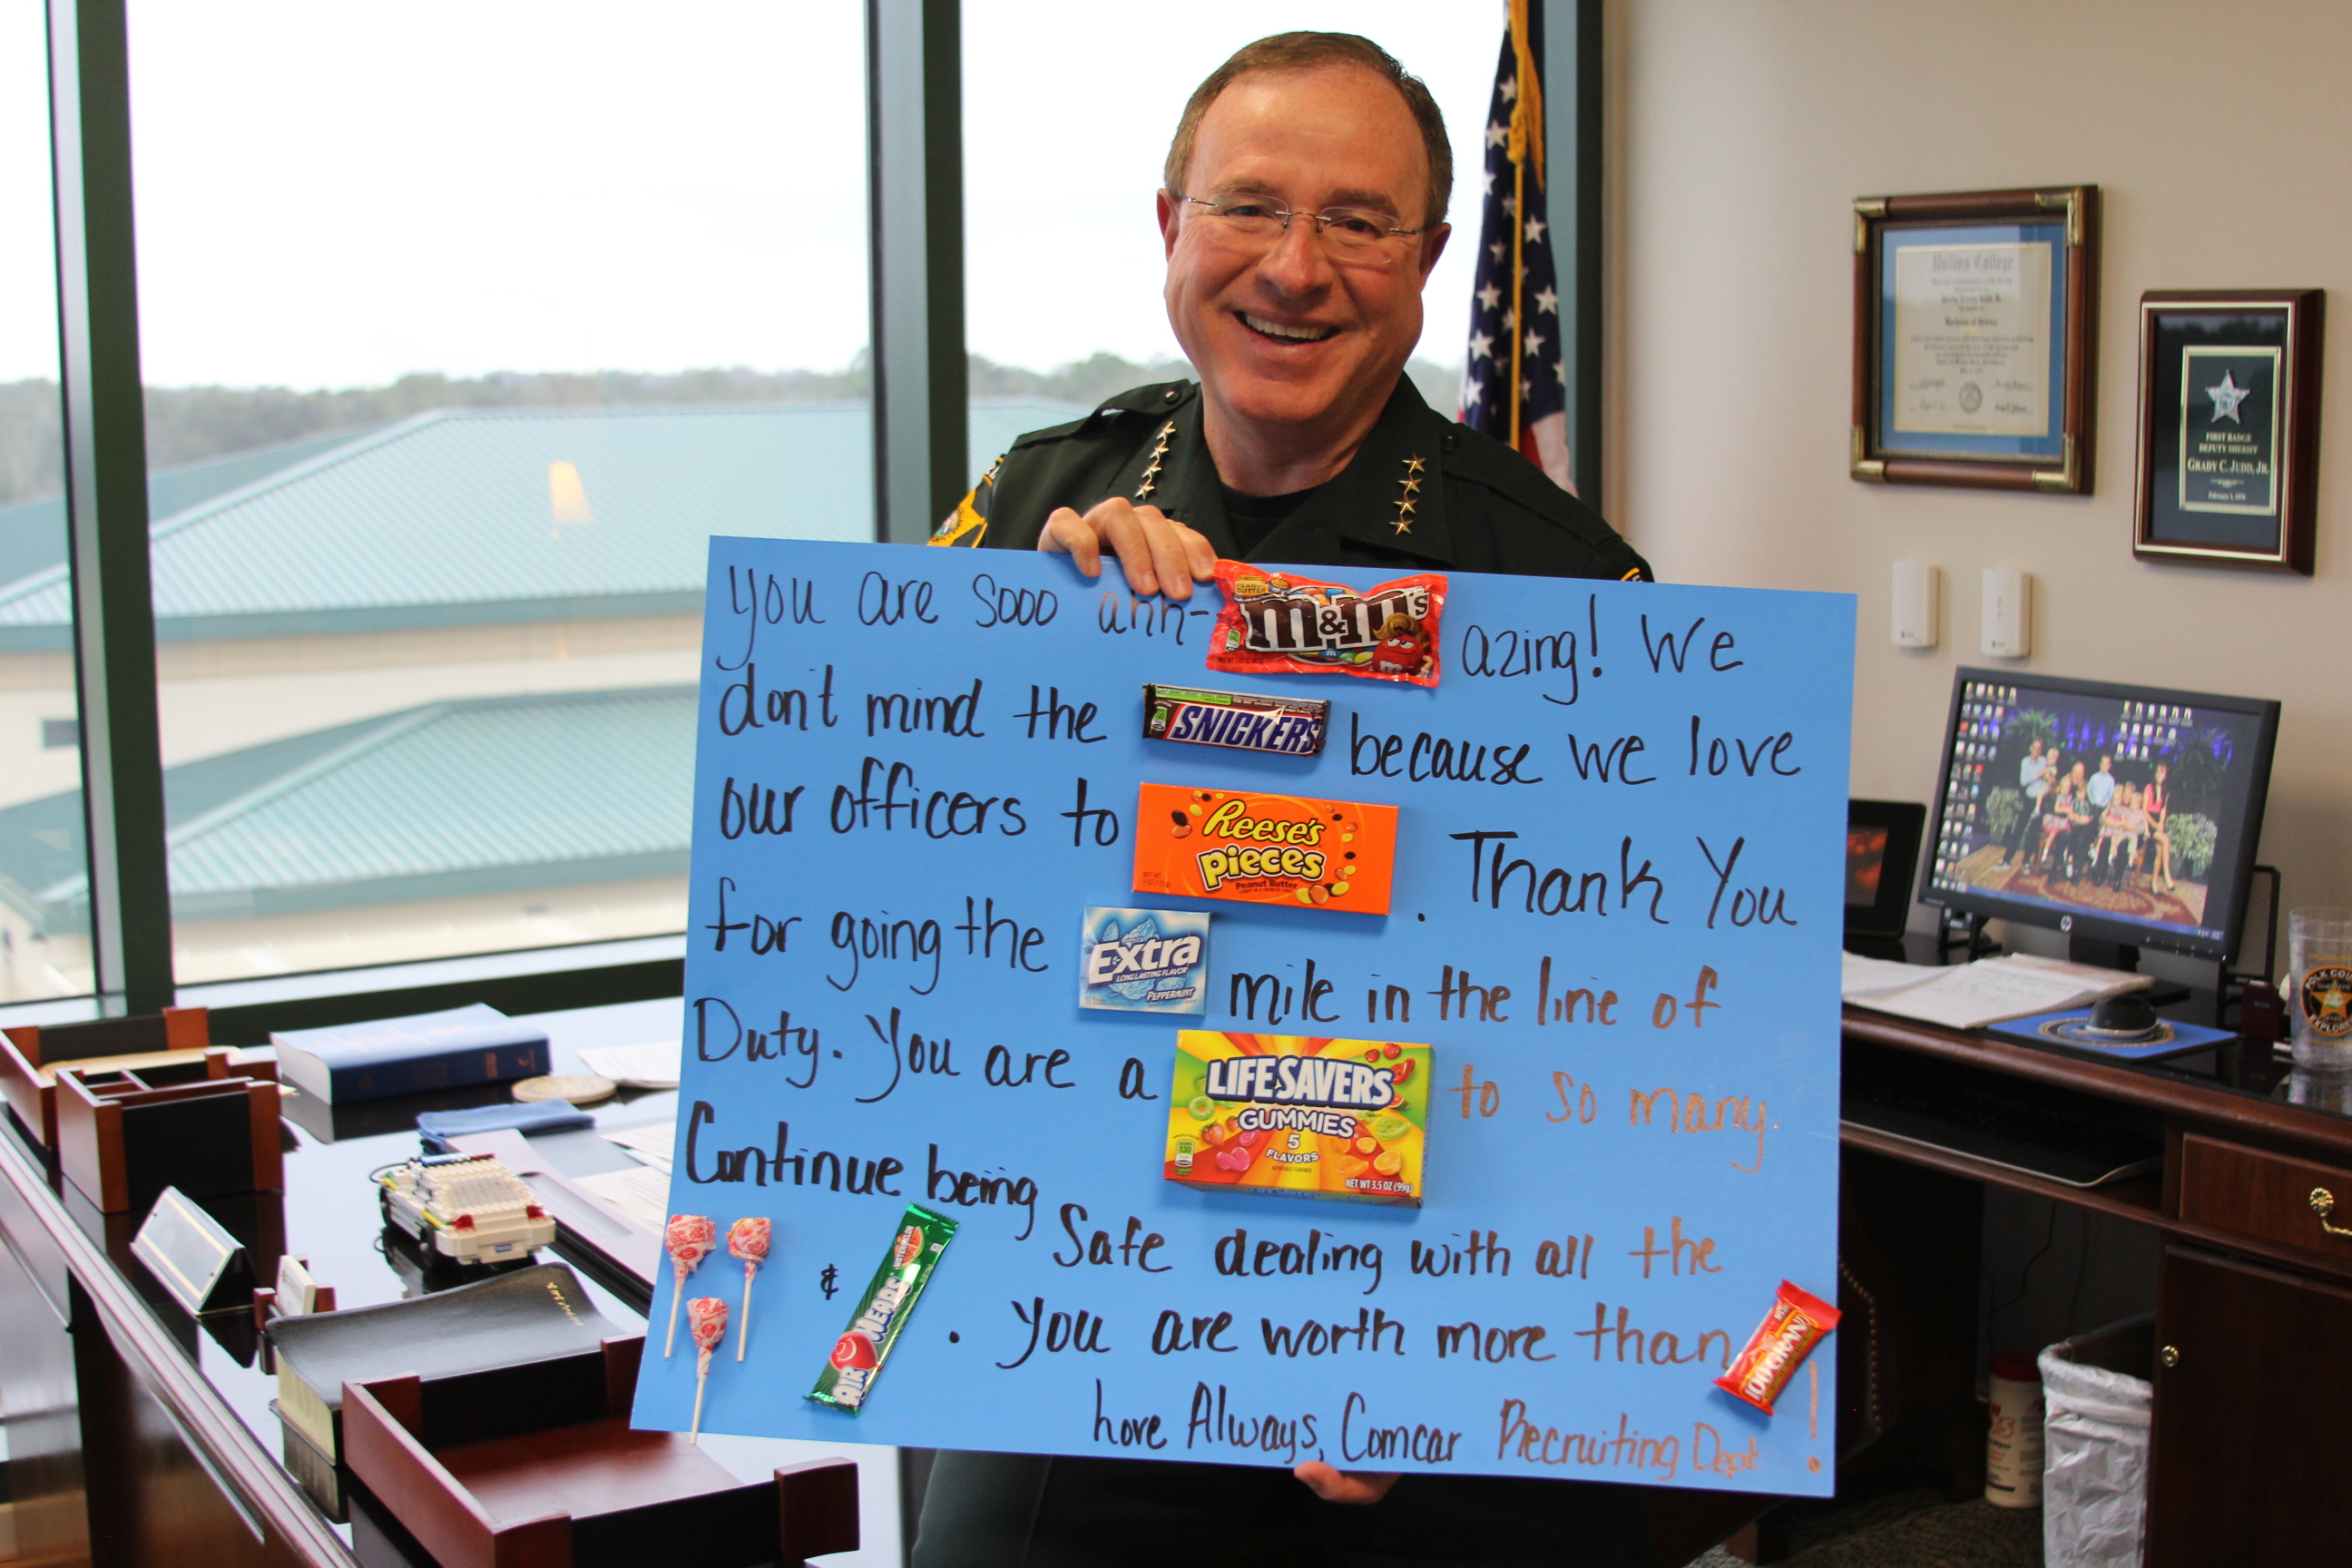 you are sooo ahh- PEANUT BUTTER m&m's azing! We
don't mind the SNICKERS because we love
our officers to Reese's pieces Peanut Butter . Thank You
for going the Extra LONG LASTING FLAVOR PEPPERMINT mile in the line of
Duty. You are a LIFE SAVERS GUMMIES 5 FLAVORS NET WT 3.5 OZ (99g) to so many.
Continue being
Safe dealing with all the
& AIRHEADS WATERMELON . you are worth more than 100GRAND !
Love Always, Comcar Recruiting Dept
Rollins College
Bachelor of Science
FIRST BADGE
DEPUTY SHERIFF
GRADY C. JUDD, JR.
February 1, 1974
hp